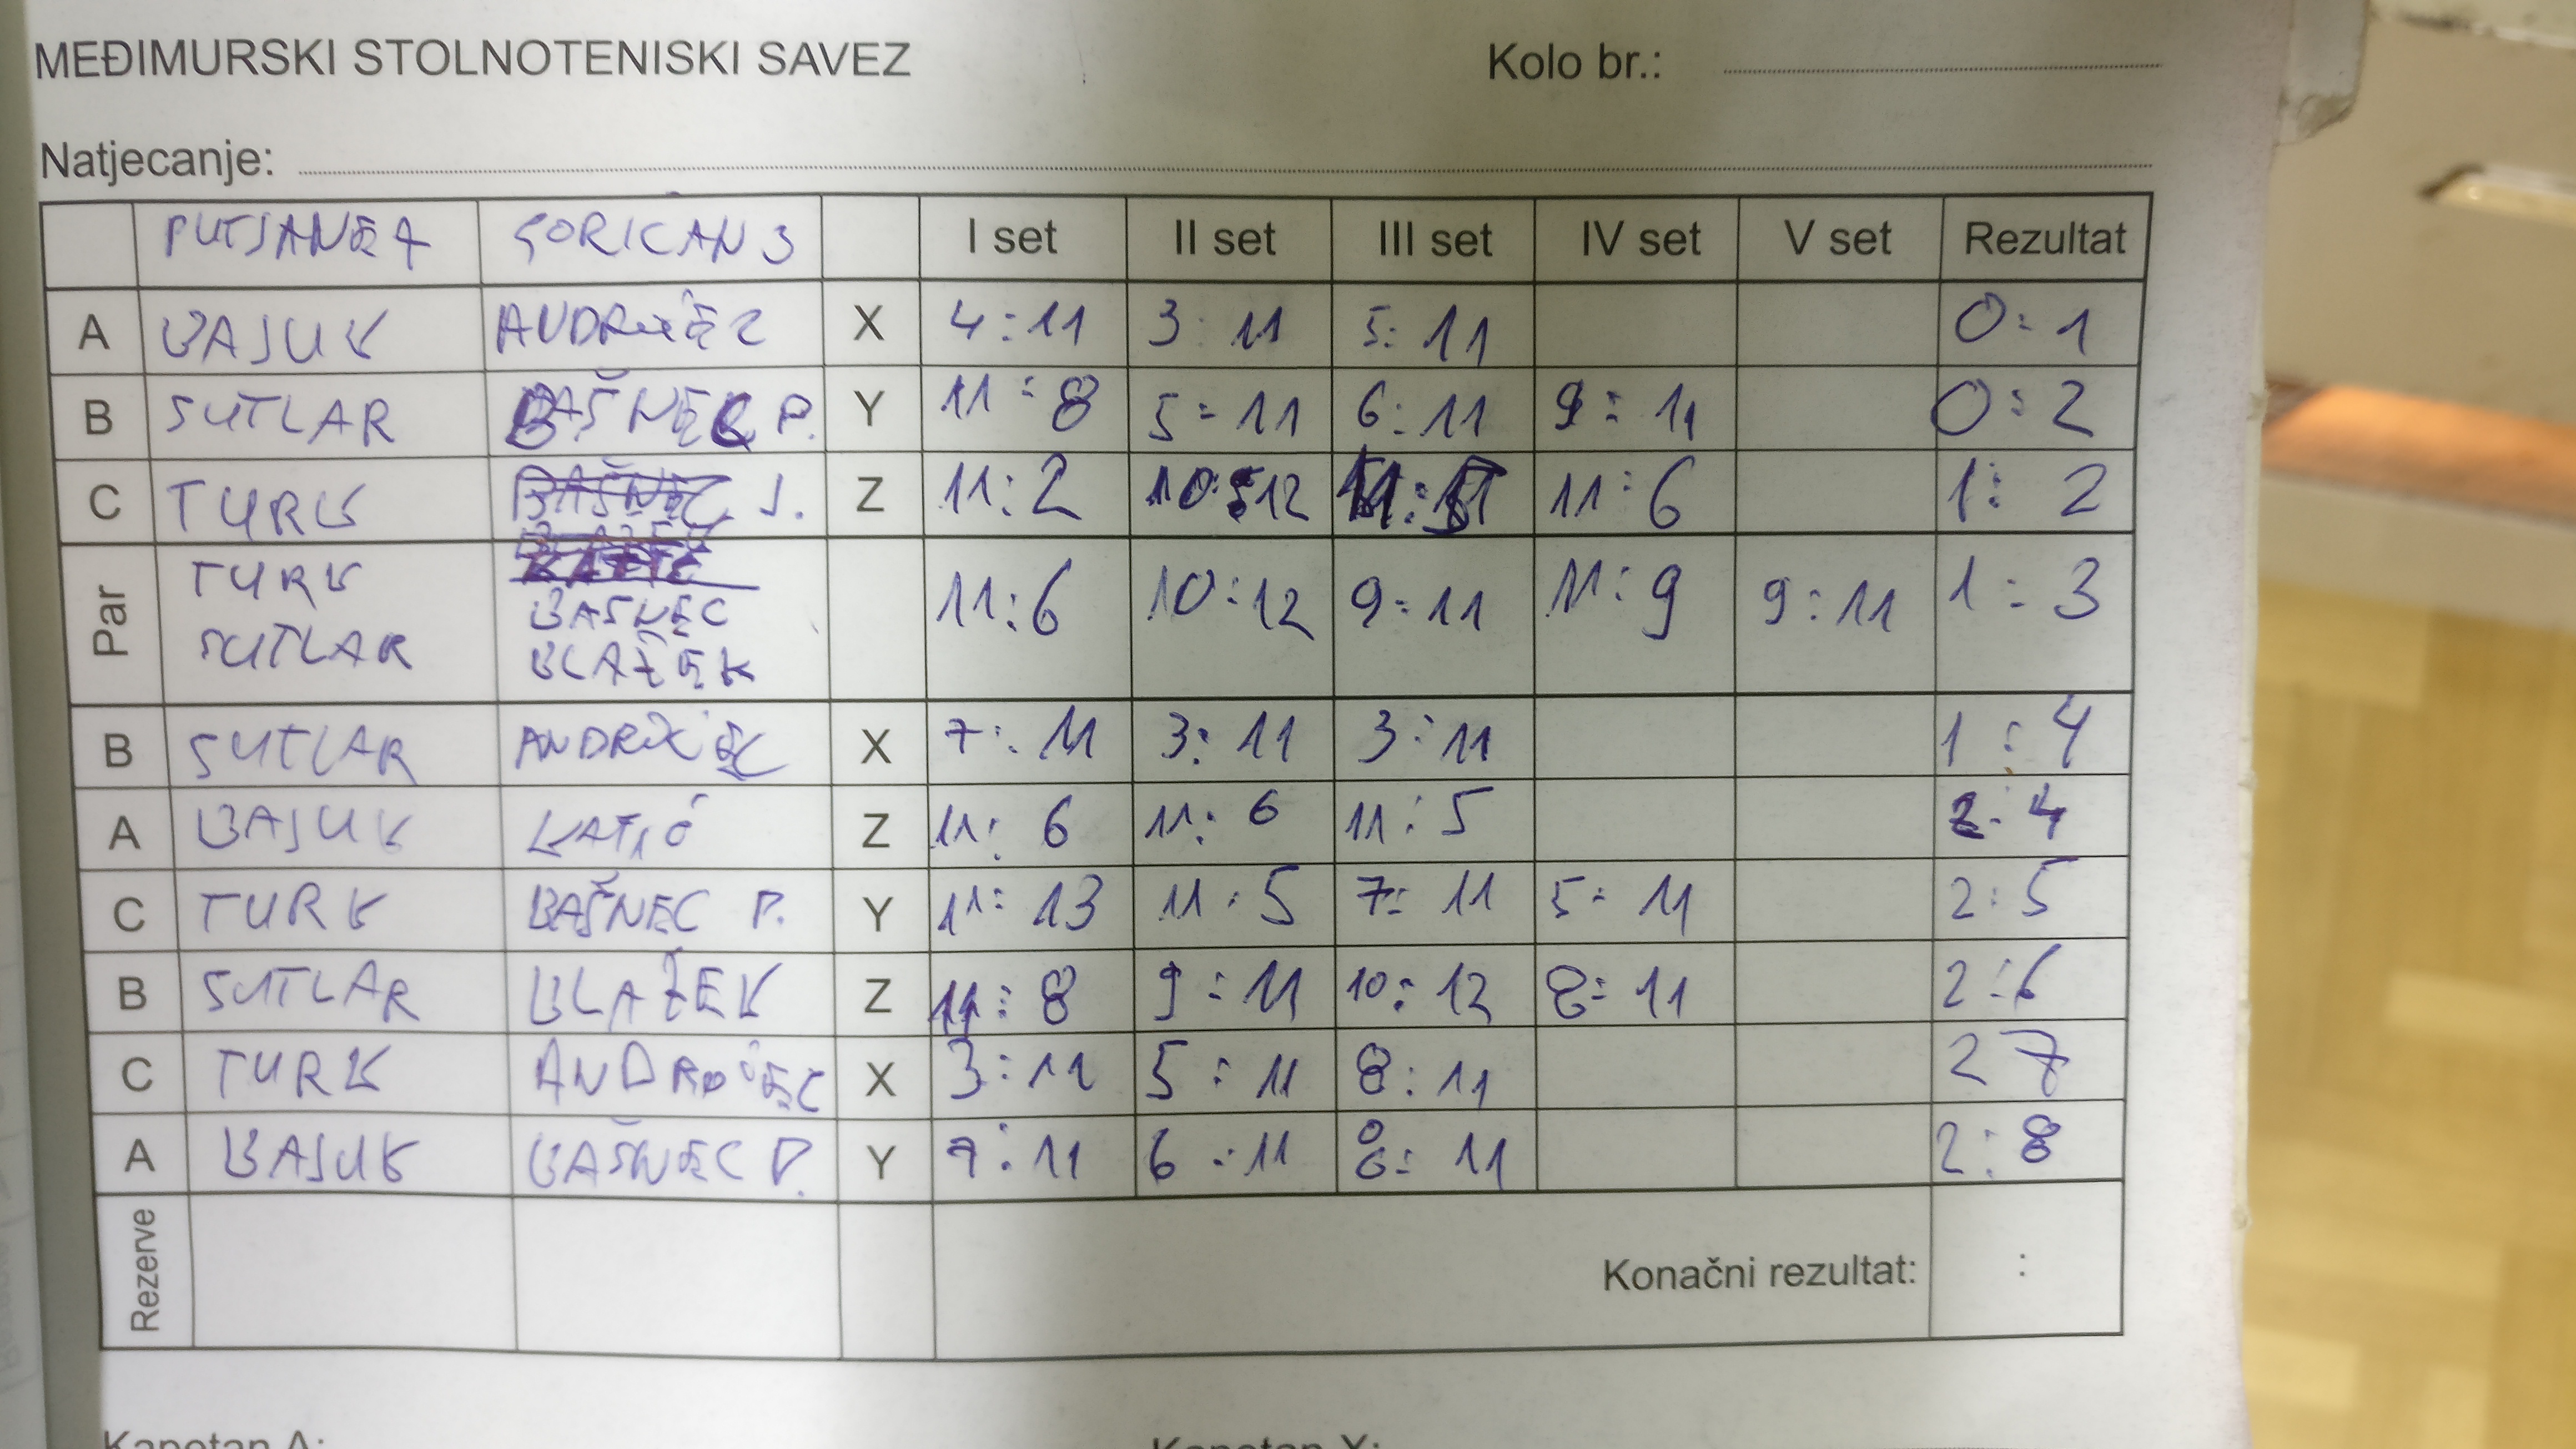 MEĐIMURSKI STOLNOTENISKI SAVEZ Kolo br.:
Natjecanje:
PUTJANE 7 GORICAN 3 I set II set III set IV set V set Rezultat
A BAJUK X 4:11 3:11 5:11 0:1
B SUTLAR BAŠNEC P. Y 11:8 5:11 6:11 9:11 0:2
C TURK BAŠNEC J. Z 11:2 10:12 11:6 1:2
Par TURK SUTLAR BAŠNEC BLAŽEK 11:6 10:12 9:11 11:9 9:11 1:3
B SUTLAR X 7:11 3:11 3:11 1:4
A BAJUK LATIĆ Z 11:6 11:6 11:5 2:4
C TURK BAŠNEC P. Y 11:13 11:5 7:11 5:11 2:5
B SUTLAR BLAŽEK Z 11:8 9:11 10:12 8:11 2:6
C TURK ANDROIEC X 3:11 5:11 8:11 2 7
A BAJUK BAŠNEC P. Y 7:11 6:11 8:11 2:8
Rezerve Konačni rezultat: :